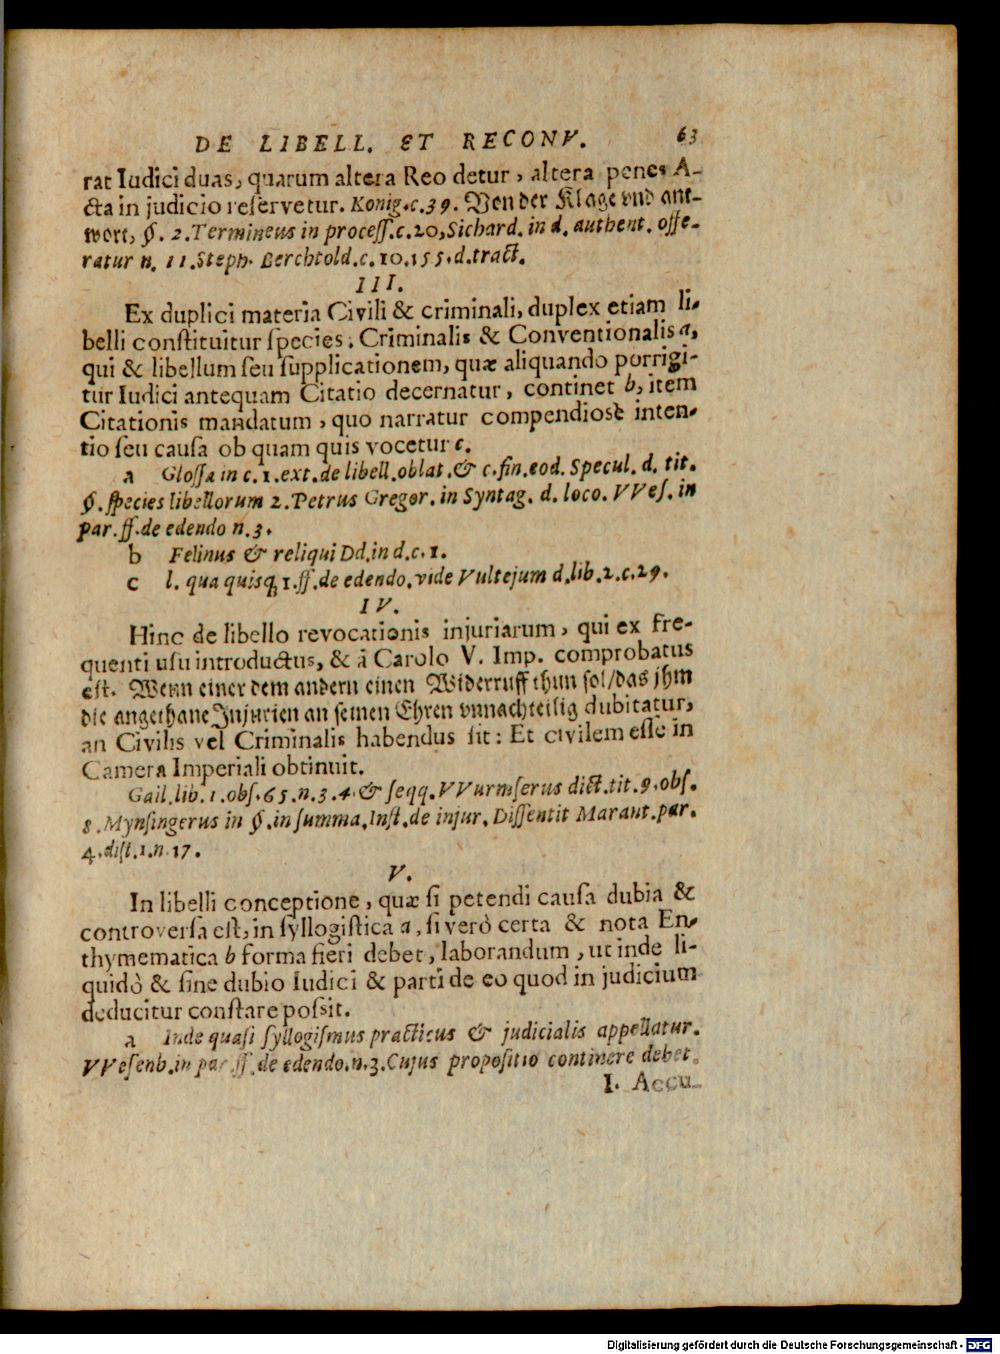 DE LIBELL. ET RECONV. 63
rat Iudici duas, quarum altera Reo detur, altera penes A-
cta in judicio reſervetur. Konig. c. 39. Von der Klage vnd ant-
wort, §. 2. Termineus in proceſſ. c. 20, Sichard. in d. authent. offe-
ratur n. 11. Steph. Berchtold. c. 10. 155. d. tract.
III.
Ex duplici materia Civili & criminali, duplex etiam li-
belli conſtituitur ſpecies, Criminalis & Conventionalis a,
qui & libellum ſeu ſupplicationem, quæ aliquando porrigi-
tur Iudici antequam Citatio decernatur, continet b, item
Citationis mandatum, quo narratur compendiosè inten-
tio ſeu cauſa ob quam quis vocetur c.
a Gloſſa in c. 1. ext. de libell. oblat. & c. fin. eod. Specul. d. tit.
§. ſpecies libellorum 2. Petrus Gregor. in Syntag. d. loco. VVeſ. in
par. ff. de edendo n. 3.
b Felinus & reliqui Dd. in d. c. 1.
c l. qua quisq; 1. ff. de edendo. vide Vultejum d. lib. 2. c. 29.
IV.
Hinc de libello revocationis injuriarum, qui ex fre-
quenti uſu introductus, & à Carolo V. Imp. comprobatus
eſt. Wenn einer dem andern einen Widerruff thun ſol/das jhm
die angethane Injurien an ſeinen Ehren vnnachteilig dubitatur,
an Civilis vel Criminalis habendus ſit: Et civilem eſſe in
Camera Imperiali obtinuit.
Gail. lib. 1. obſ. 65. n. 3. 4. & ſeqq. VVurmſerus dict. tit. 9. obſ.
8. Mynſingerus in §. in ſumma, Inſt. de injur. Diſſentit Marant. par.
4. diſt. 1. n. 17.
V.
In libelli conceptione, quæ ſi petendi cauſa dubia &
controverſa eſt, in ſyllogiſtica a, ſi verò certa & nota En-
thymematica b forma fieri debet, laborandum, ut inde li-
quidò & ſine dubio Iudici & parti de eo quod in judicium
deducitur conſtare poſsit.
a Inde quaſi ſyllogiſmus practicus & judicialis appellatur.
VVeſenb. in par. ff. de edendo. n. 3. Cujus propoſitio continere debet.
I. Accu-
Digitalisierung gefördert durch die Deutsche Forschungsgemeinschaft - DFG